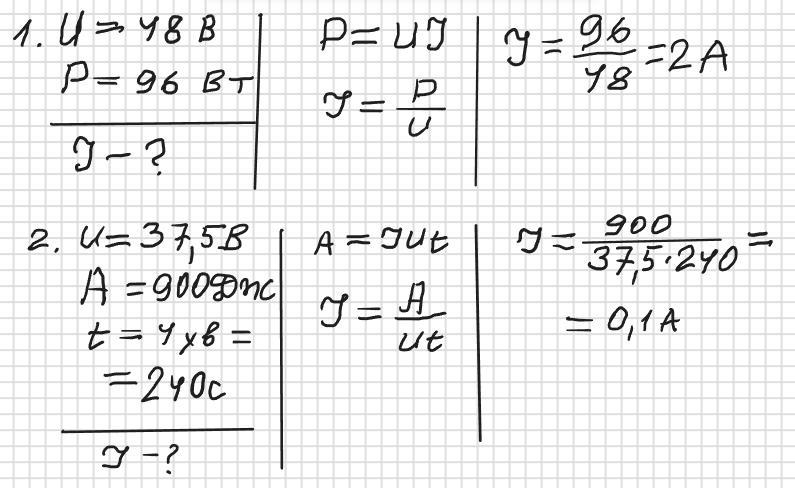 1. U = 48 В
P = 96 Вт
I - ?
P = UI
I = P/U
I = 96/48 = 2 А
2. U = 37,5 В
A = 900 Дж
t = 4 хв =
= 240 с
I - ?
A = IUt
I = A/Ut
I = 900/37,5·240 =
= 0,1 А